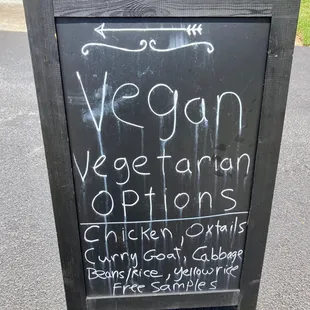 Vegan
Vegetarian
Options
Chicken, Oxtails
Curry Goat, Cabbage
Beans/Rice, yellow rice
Free Samples